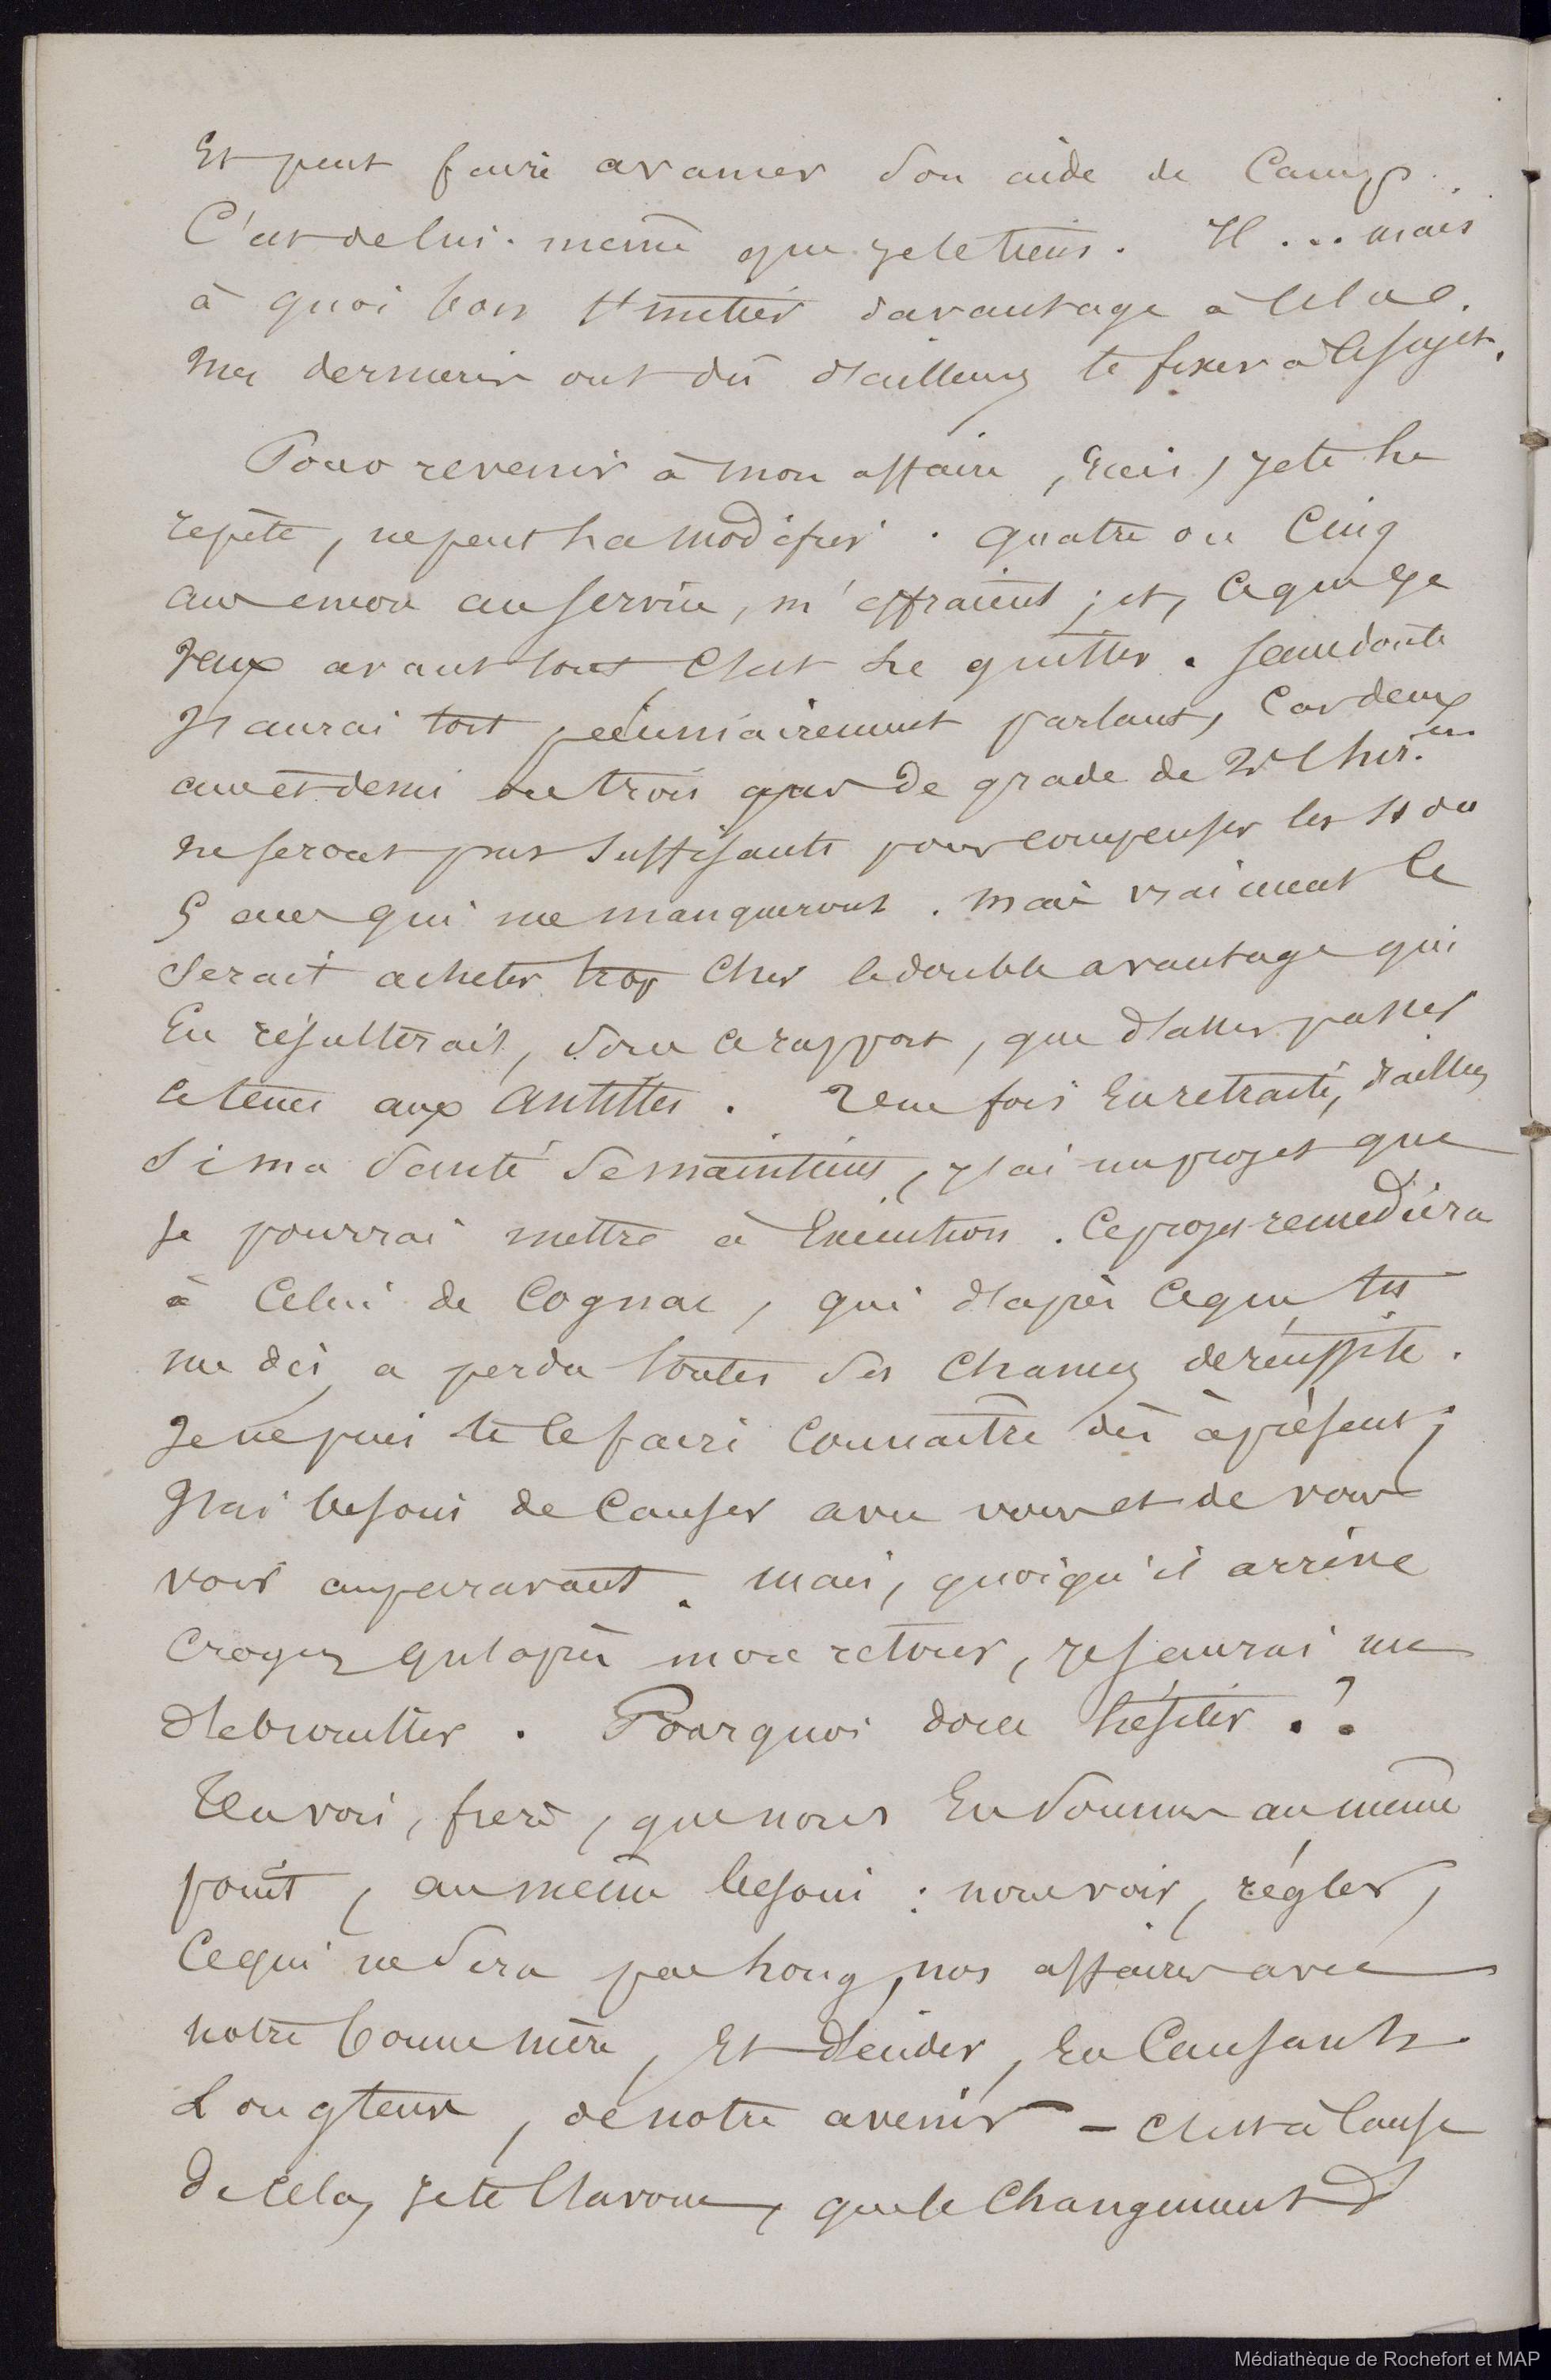 Et peut faire avancer son aide de Camp.
C'est de lui-même que je le tiens. Il ... mais
à quoi bon t'initier davantage à cela.
Mes dernières ont dû d'ailleurs te fixer à ce sujet.
Pour revenir à mon affaire, ceci, je te le
répète, ne peut la modifier. Quatre ou Cinq
ans encore au service, m'effraient ; et, ce que je
veux avant tout c'est le quitter. Sans doute
j'aurai tort pécuniairement parlant, Car deux
ans et demi ou trois ans de grade de 2d Chir.en
ne seront pas suffisants pour compenser les 4 ou
5 ans qui me manqueront. Mais vraiment ce
serait acheter trop Cher le double avantage qui
En résulterait, sous ce rapport, que d'aller passer
ce tems aux Antilles. Une fois En retraite, d'ailleurs
si ma santé se maintient, j'ai un projet que
je pourrai mettre à Exécution. Ce projet remédiera
à Celui de Cognac, qui d'après ce que tu
me dis, a perdu toutes ses chances de réussite.
Je ne puis te le faire Connaître dès à présent ;
j'ai besoin de Causer avec vous et de vous
voir auparavant. Mais, quoiqu'il arrive
Croyez qu'après mon retour, je saurai me
débrouiller. Pourquoi donc hésiter ?
Tu vois, frère, que nous En sommes au même
point, au même besoin : nous voir, régler,
Ce qui ne sera pas long, nos affaires avec
notre bonne mère, Et décider, En Causant
Longtems, de notre avenir - C'est à Cause
de cela, je te l'avoue, que le Changement d